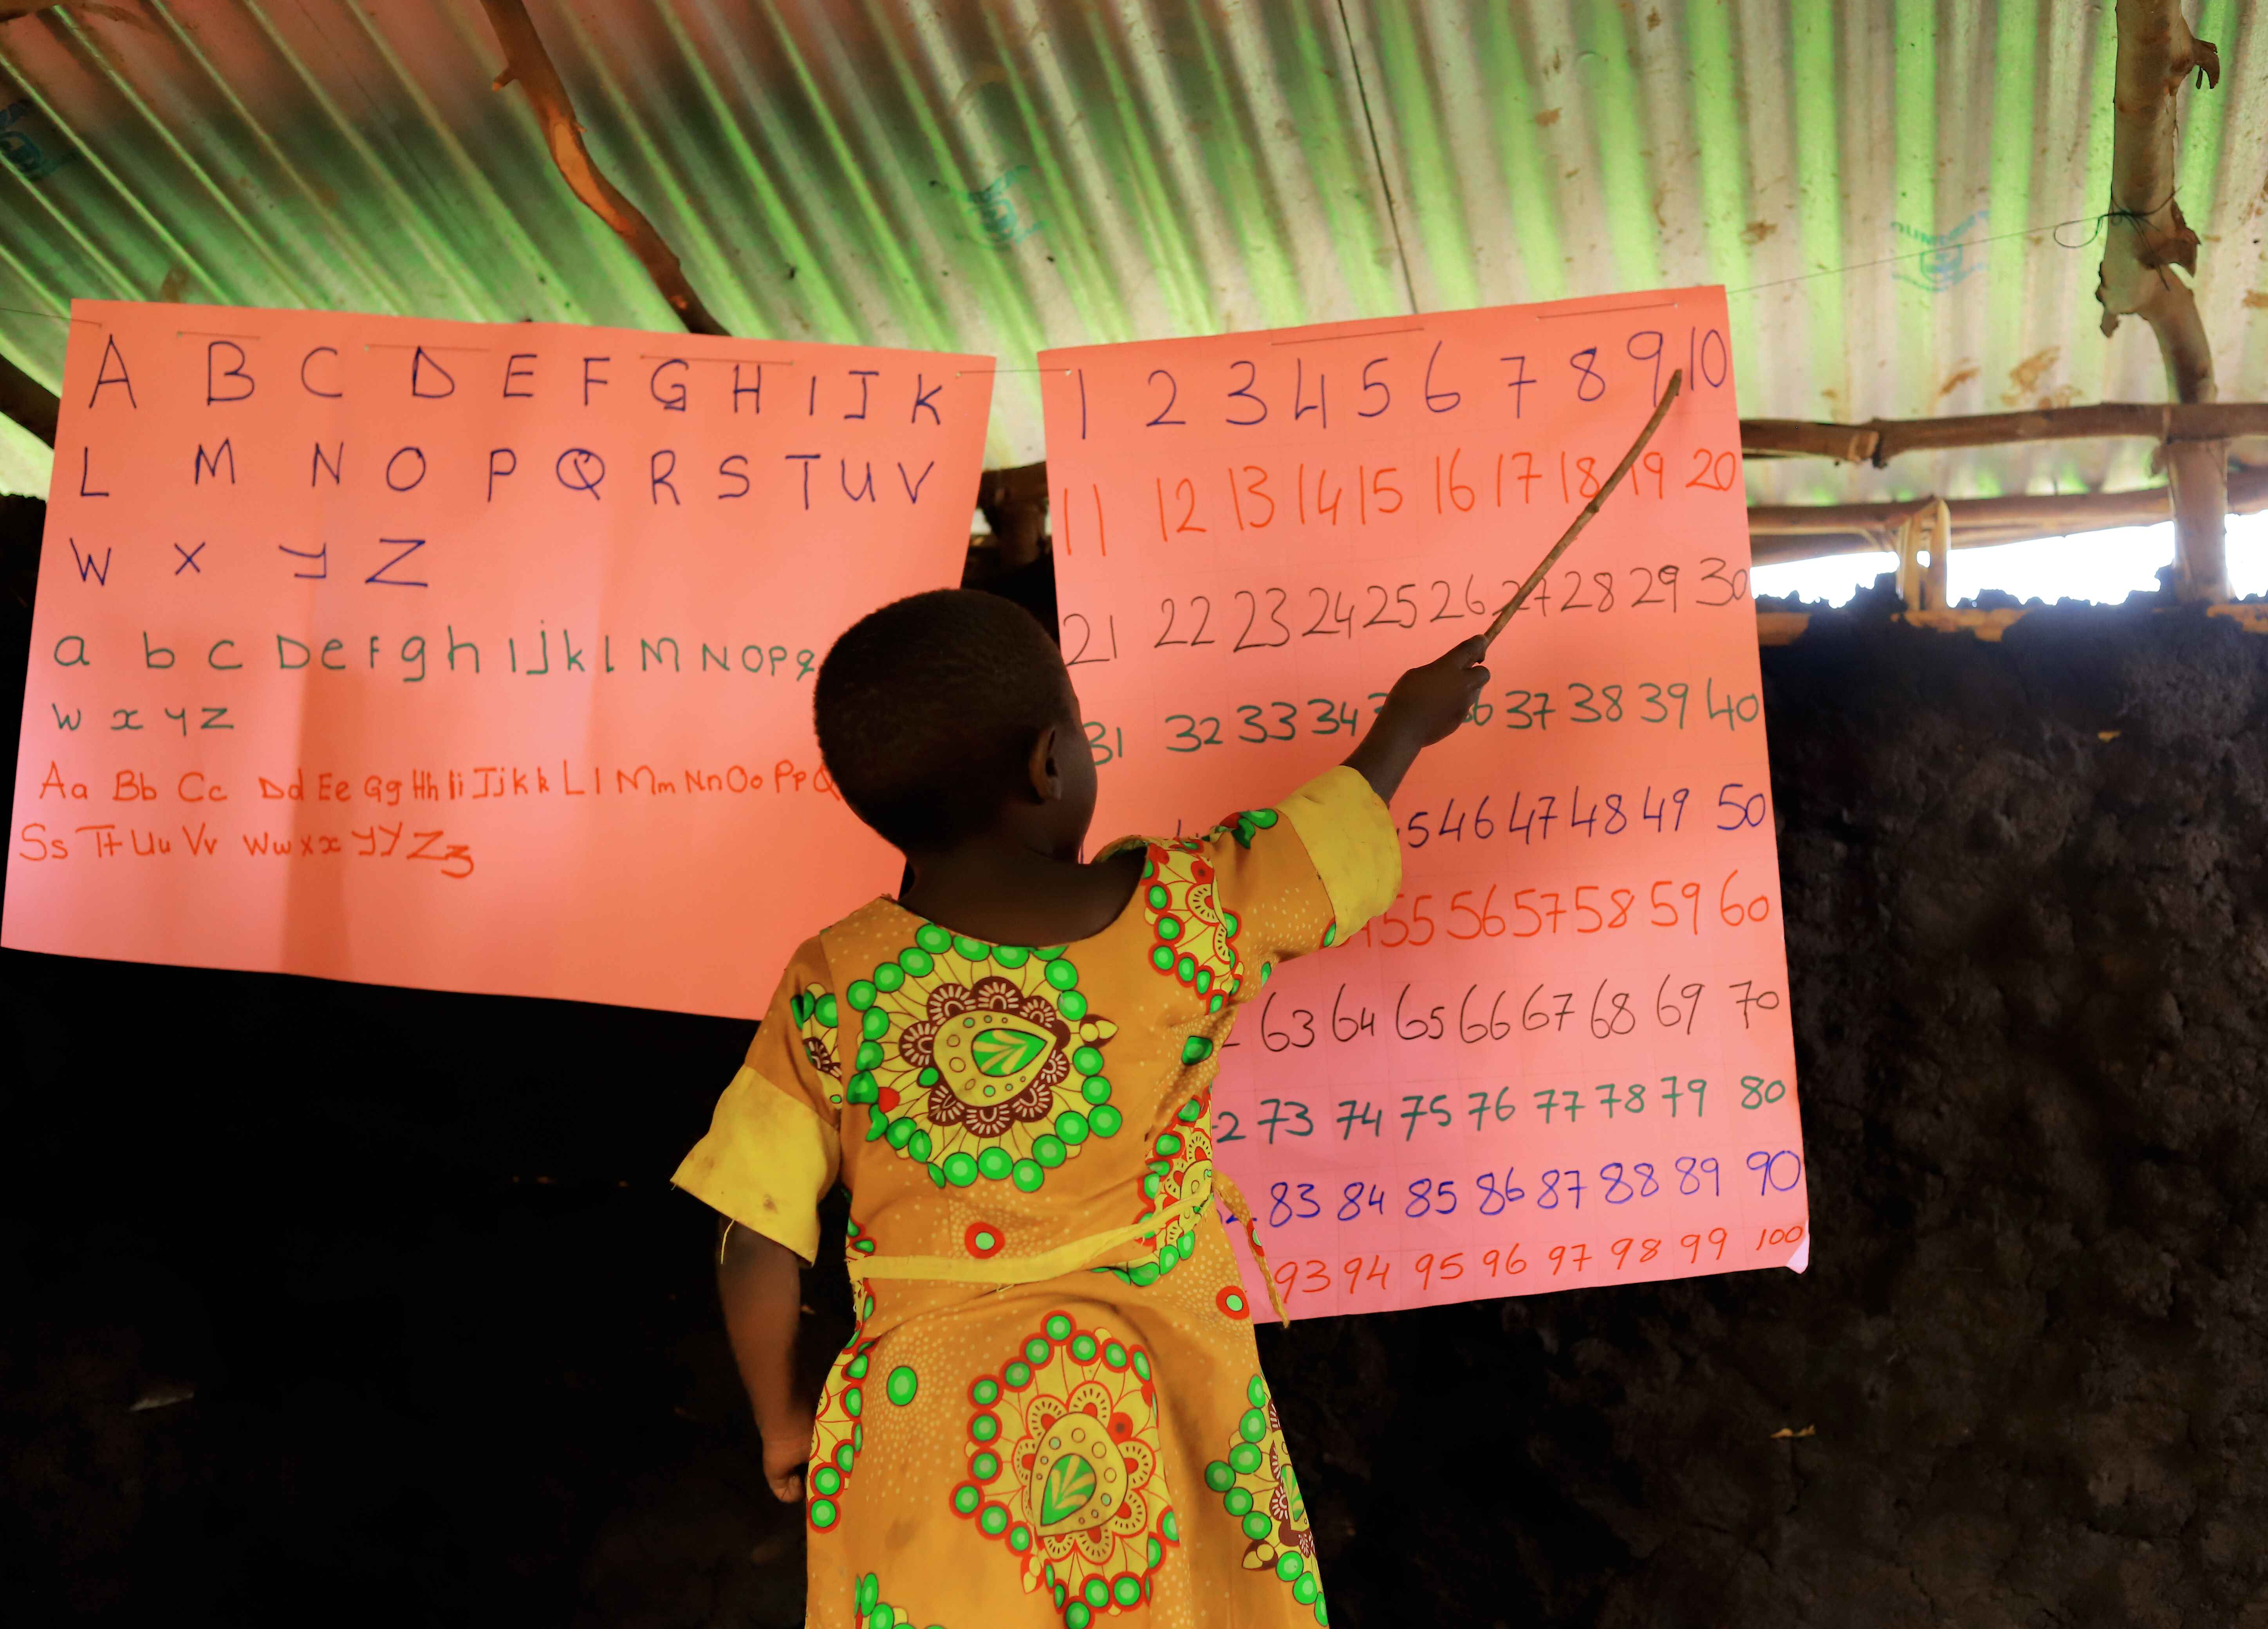 A B C D E F G H I J K
L M N O P Q R S T U V
W X Y Z
a b c D e f g h I j k l M N O P q
w x y z
Aa Bb Cc Dd Ee Gg Hh Ii Jj k k L l Mm Nn Oo Pp Q
Ss Tt Uu Vv Ww xx yy Zz
1 2 3 4 5 6 7 8 9 10
11 12 13 14 15 16 17 18 19 20
21 22 23 24 25 26 27 28 29 30
31 32 33 34 37 38 39 40
46 47 48 49 50
55 56 57 58 59 60
63 64 65 66 67 68 69 70
73 74 75 76 77 78 79 80
83 84 85 86 87 88 89 90
93 94 95 96 97 98 99 100